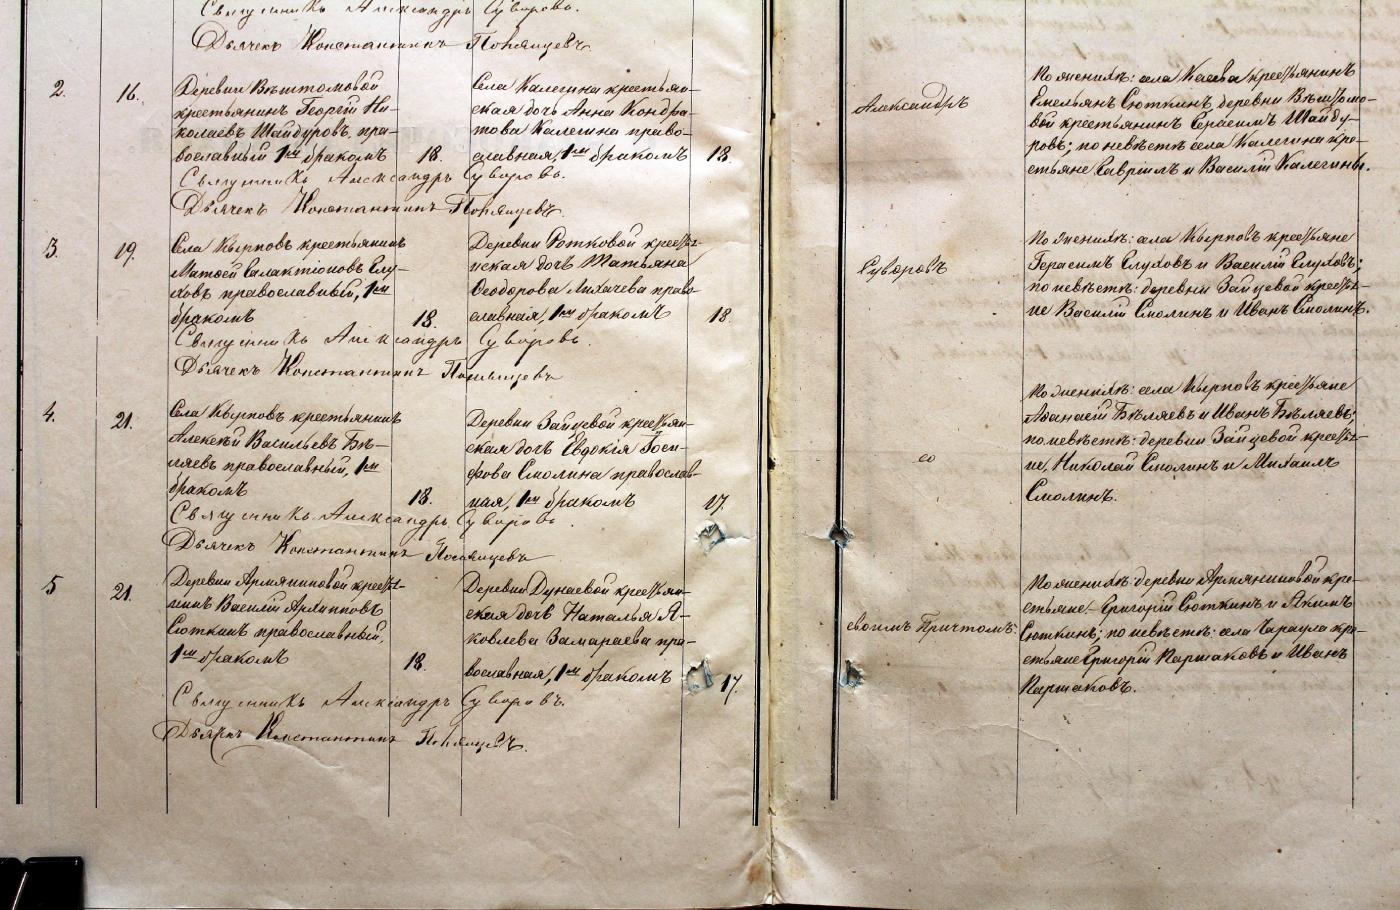 Священникъ Александръ Суворовъ.
Дьячекъ Константинъ
2. 16. Деревни Вѣштомовой
крестьянинъ Георгій Ни-
колаевъ Шайдуровъ, пра-
вославный 1мъ бракомъ 18.
Села Калегина крестьян-
ская дочь Анна Кондра-
това Калегина право-
славная, 1мъ бракомъ 18.
Александръ
По женихѣ: села Каева крестьянинъ
Емельянъ Сюткинъ, деревни Вѣштомо-
вой крестьянинъ Герасимъ Шайду-
ровъ; по невѣстѣ села Калегина кре-
стьяне Гавріилъ и Василій Калегины.
Священникъ Александръ Суворовъ.
Дьячекъ Константинъ
3. 19. Села Кырповъ крестьянинъ
Матѳей Галактіоновъ Глу-
ховъ православный, 1мъ
бракомъ 18.
Деревни Рѳтковой крестья-
нская дочь Татьяна
Ѳеодорова Лихачева право-
славная, 1мъ бракомъ 18.
Суворовъ
По женихѣ: села Кырповъ крестьяне
Герасимъ Глуховъ и Василій Глуховъ;
по невѣстѣ: деревни Зайцевой крестья-
не Василій Смолинъ и Иванъ Смолинъ.
Священникъ Александръ Суворовъ.
Дьячекъ Константинъ
4. 21. Села Кырповъ крестьянинъ
Алексѣй Васильевъ Бѣ-
ляевъ православный, 1мъ
бракомъ 18.
Деревни Зайцевой крестьян-
ская дочь Евдокія Іоси-
фова Смолина православ-
ная, 1мъ бракомъ 17.
со
По женихѣ: села Кырповъ крестьяне
Аѳанасій Бѣляевъ и Иванъ Бѣляевъ;
по невѣстѣ: деревни Зайцевой крестья-
не, Николай Смолинъ и Михаилъ
Смолинъ.
Священникъ Александръ Суворовъ
Дьячекъ Константинъ
5 21. Деревни Армяниновой крестья-
нинъ Василій Архипповъ
Сюткинъ православный,
1мъ бракомъ 18.
Деревни Дунаевой крестьян-
ская дочь Наталья Я-
ковлева Замараева пра-
вославная, 1мъ бракомъ 17.
своимъ Причтомъ.
По женихѣ: деревни Армяниновой кре-
стьяне Григорій Сюткинъ и Якимъ
Сюткинъ; по невѣстѣ: села Чараула кре-
стьяне Григорій Паршаковъ и Иванъ
Паршаковъ.
Священникъ Александръ Суворовъ.
Дьячекъ Константинъ